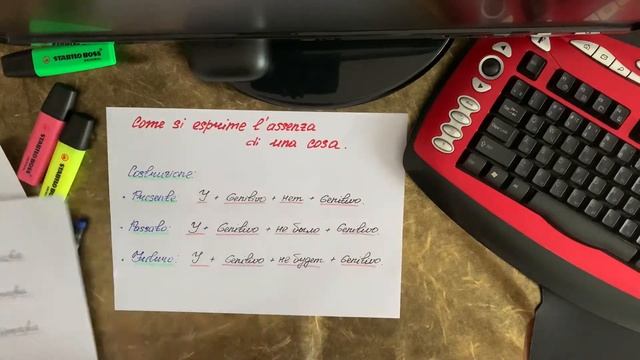 STABILO BOSS
STABILO BOSS
Come si esprime l'assenza
di una cosa.
Costruzione:
• Presente: У + Genitivo + нет + Genitivo.
• Passato: У + Genitivo + не было + Genitivo.
• Futuro: У + Genitivo + не будет + Genitivo.